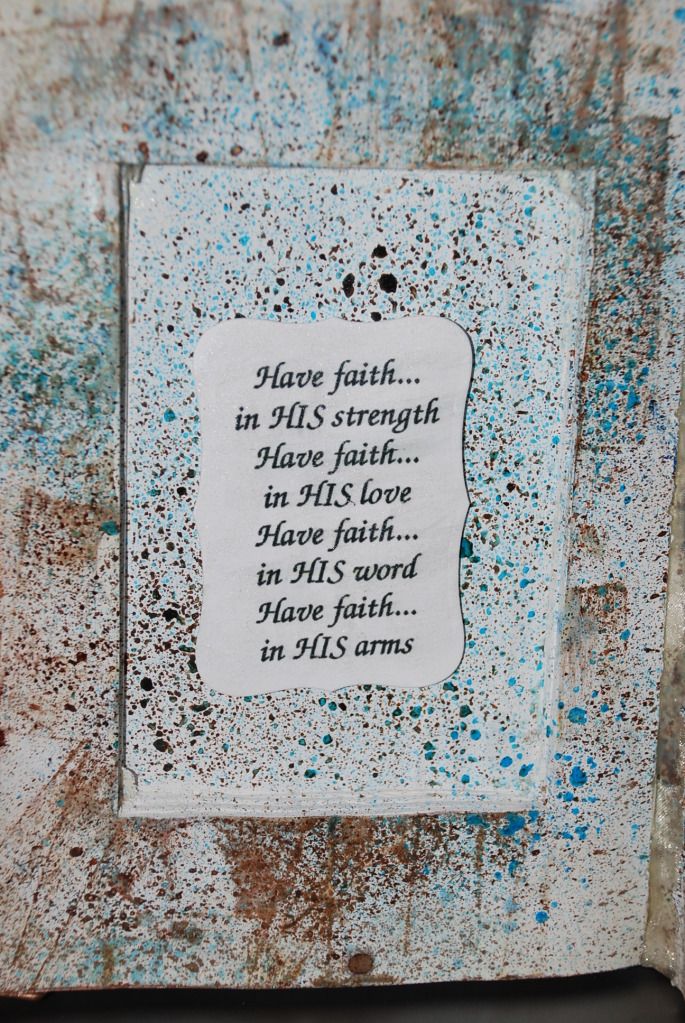 Have faith...
in HIS strength
Have faith...
in HIS love
Have faith...
in HIS word
Have faith...
in HIS arms